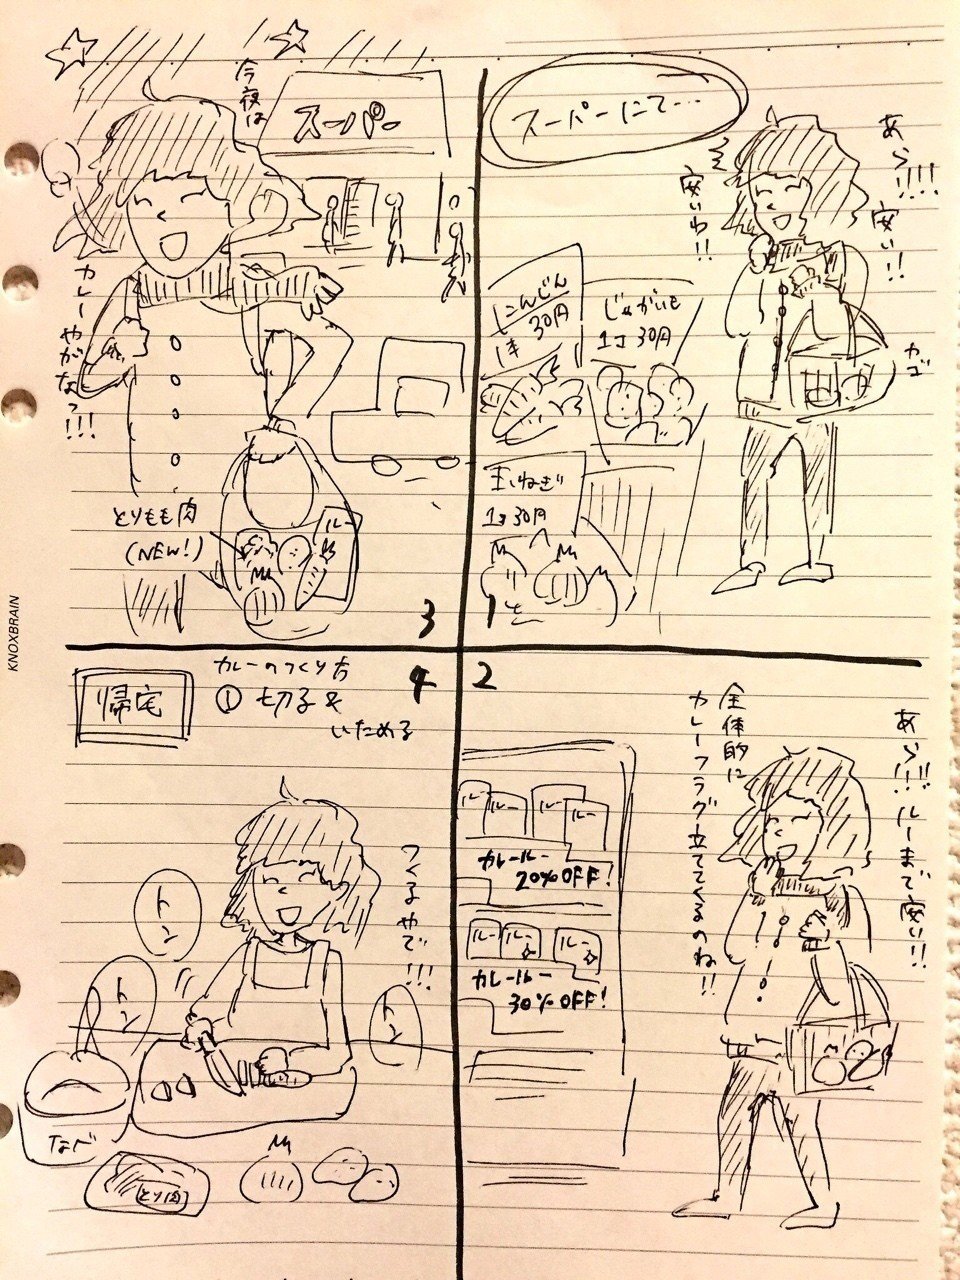 スーパーにて…
あら!!!! 安い!!
安いわ!!
にんじん
1本 30円
じゃがいも
1コ 30円
玉ねぎ
1コ 30円
カゴ
1
2
あら!!! ルーまで安い!!
全体的に
カレーフラグ立ててくるのね!!
ルー
ルー
ルー
カレールー
20% OFF!
ルー
ルー
ルー
カレールー
30% OFF!
スーパー
今夜は
カレーやがな〜っ!!!
とりもも肉
(NEW!)
ルー
3
4
帰宅
カレーのつくり方
① 切る&
いためる
つくるやで!!!
トン
トン
トン
なべ
とり肉
KNOXBRAIN